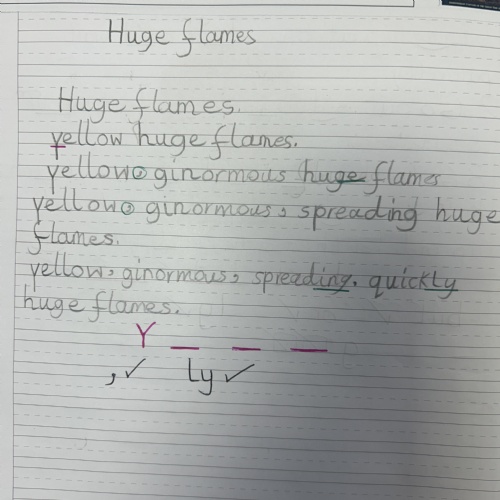 Huge flames
Huge flames.
yellow huge flames.
yellow, ginormous huge flames
yellow, ginormous, spreading huge
flames.
yellow, ginormous, spreading, quickly
huge flames.
Y _ _ _
, ✓ Ly ✓